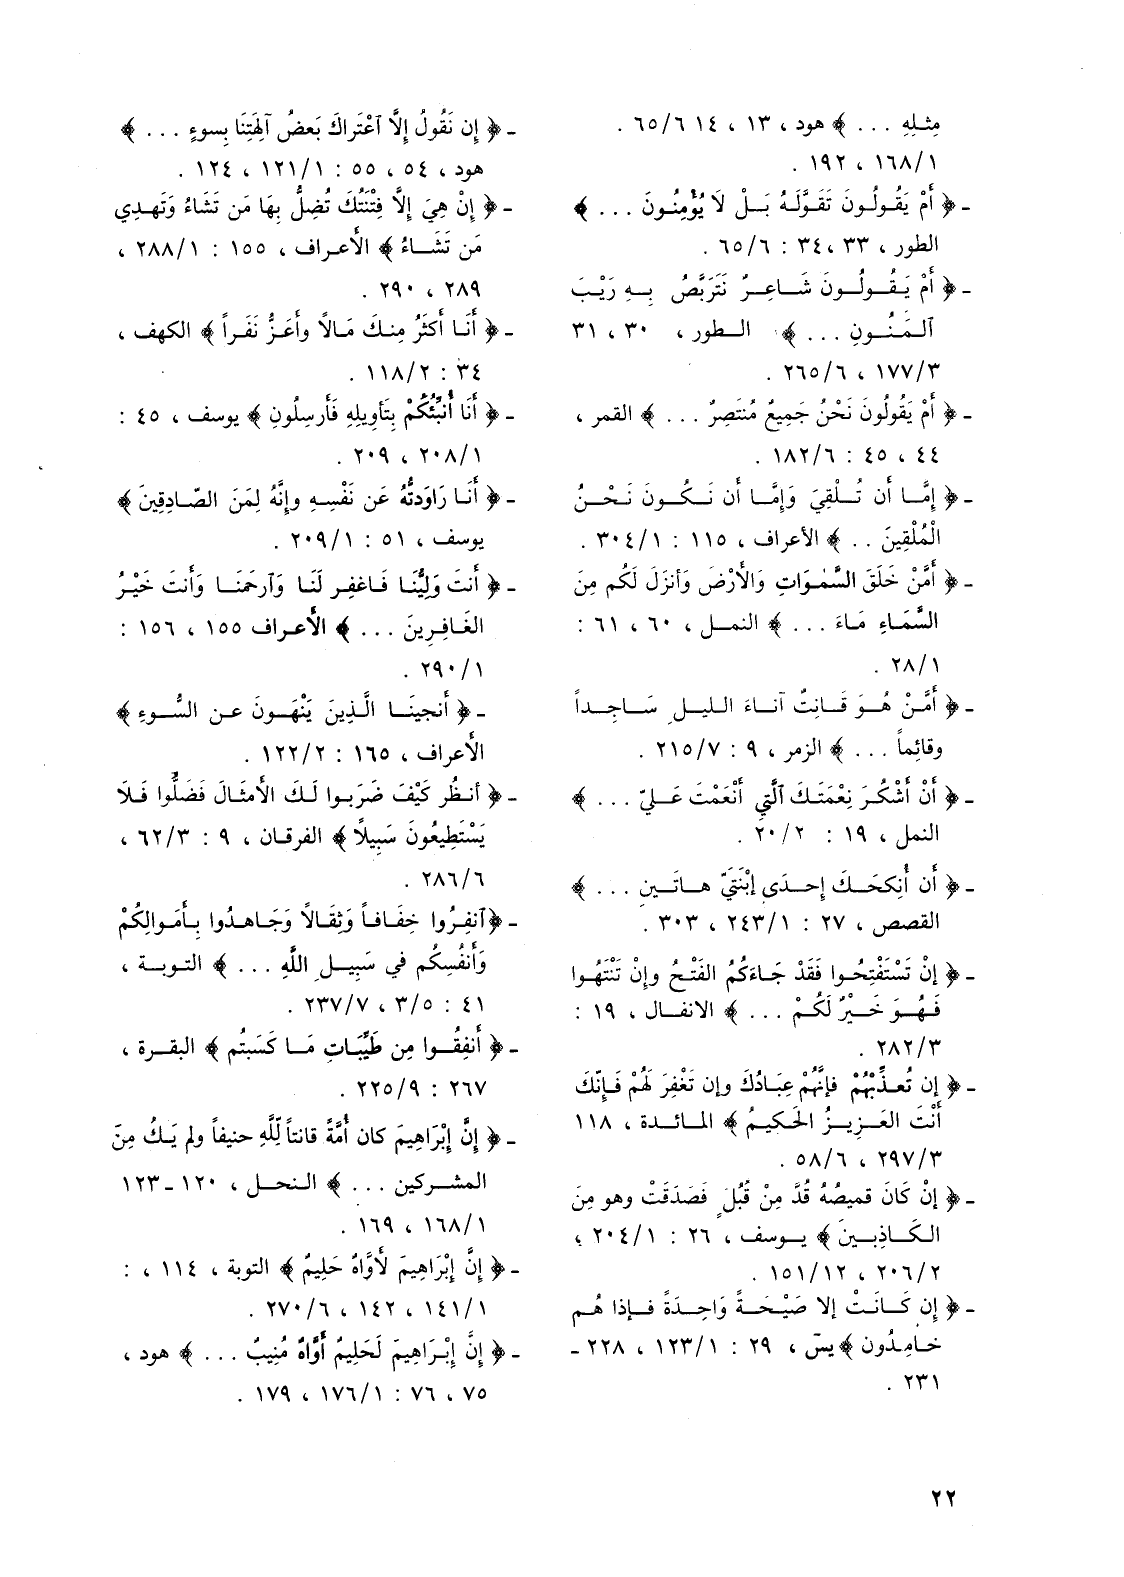 مِثـلِهِ ... ﴾ هود ، ١٣ ، ١٤ ٦٥/٦ .
١٦٨/١ ، ١٩٢ .
ـ ﴿ أَمْ يَقُولُونَ تَقَوَّلَهُ بَـلْ لَا يُؤْمِنُونَ ... ﴾
الطور ، ٣٣ ،٣٤ : ٦٥/٦ .
ـ ﴿ أَمْ يَـقُـولُـونَ شَـاعِـرٌ نَتَرَبَّصُ بِـهِ رَيْـبَ
ٱلْمَنُـونِ ... ﴾ الـطور ، ٣٠ ، ٣١
١٧٧/٣ ، ٢٦٥/٦ .
ـ ﴿ أَمْ يَقُولُونَ نَحْنُ جَمِيعٌ مُنْتَصِرٌ ... ﴾ القمر ،
٤٤ ، ٤٥ : ١٨٢/٦ .
ـ ﴿ إِمَّـا أَن تُـلْقِيَ وَإِمَّـا أَن نَـكُـونَ نَـحْـنُ
الْمُلْقِينَ .. ﴾ الأعراف ، ١١٥ : ٣٠٤/١ .
ـ ﴿ أَمَّنْ خَلَقَ السَّمٰوَاتِ وَالْأَرْضَ وَأَنزَلَ لَكُم مِنَ
السَّمَاءِ مَاءً ... ﴾ النمـل ، ٦٠ ، ٦١ :
٢٨/١ .
ـ ﴿ أَمَّـنْ هُـوَ قَـانِتٌ آنـاءَ الـليـلِ سَـاجِـداً
وقائِماً ... ﴾ الزمر ، ٩ : ٢١٥/٧ .
ـ ﴿ أَنْ أَشْكُـرَ نِعْمَتَـكَ ٱلَّتِي أَنْعَمْتَ عَـلَيّ ... ﴾
النمل ، ١٩ : ٢٠/٢ .
ـ ﴿ أَن أُنكِحَـكَ إِحـدَى إبْنَتَيّ هـاتَـينِ ... ﴾
القصص ، ٢٧ : ٢٤٣/١ ، ٣٠٣ .
ـ ﴿ إنْ تَسْتَفْتِحُـوا فَقَدْ جَـاءَكُمُ الفَتْـحُ وإنْ تَنْتَهُـوا
فَـهُـوَ خَـيْرٌ لَكُـمْ ... ﴾ الانفـال ، ١٩ :
٢٨٢/٣ .
ـ ﴿ إن تُعـذِّبْهُمْ فإنَّهُمْ عِبَادُكَ وإن تَغْفِرَ لَهُمْ فَـإنّكَ
أَنْتَ العَـزِيـزُ الحَكيـمُ ﴾ المـائـدة ، ١١٨
٢٩٧/٣ ، ٥٨/٦ .
ـ ﴿ إِنْ كَانَ قميصُهُ قُدَّ مِنْ قُبُلٍ فَصَدَقَتْ وهو مِنَ
الكَـاذِبـينَ ﴾ يـوسف ، ٢٦ : ٢٠٤/١ ،
٢٠٦/٢ ، ١٥١/١٢ .
ـ ﴿ إِن كَـانَتْ إلا صَيْحَـةً وَاحِـدَةً فـإذا هُـم
خـامِدُون ﴾ يسَ ، ٢٩ : ١٢٣/١ ، ٢٢٨ ـ
٢٣١ .
ـ ﴿ إن نَقُولُ إلَّا ٱعْتَراكَ بَعضُ آلِهَتِنَا بِسوءٍ ... ﴾
هود ، ٥٤ ، ٥٥ : ١٢١/١ ، ١٢٤ .
ـ ﴿ إنْ هِيَ إلَّا فِتْنَتُكَ تُضِلُّ بِهَا مَن تَشَاءُ وَتَهـدِي
مَن تَشَـاءُ ﴾ الأعـراف ، ١٥٥ : ٢٨٨/١ ،
٢٨٩ ، ٢٩٠ .
ـ ﴿ أَنَـا أَكثَرُ مِنـكَ مَالاً وأَعَـزُّ نَفَـراً ﴾ الكهف ،
٣٤ : ١١٨/٢ .
ـ ﴿ أَنَا أُنَبِّئُكُمْ بِتَأوِيلِهِ فَأَرسِلُونِ ﴾ يوسف ، ٤٥ :
٢٠٨/١ ، ٢٠٩ .
ـ ﴿ أَنَـا رَاوَدتُّهُ عَن نَفْسِـهِ وإنَّهُ لِمَنَ الصَّـادِقِينَ ﴾
يوسف ، ٥١ : ٢٠٩/١ .
ـ ﴿ أَنتَ وَلِيُّنَـا فَـاغفِـر لَنَـا وَٱرحَمنَـا وَأَنتَ خَيْـرُ
الغَـافِـرِينَ ... ﴾ الأعـراف ١٥٥ ، ١٥٦ :
٢٩٠/١ .
ـ ﴿ أَنجينَـا الَّـذِينَ يَنْهَـونَ عـن السُّـوءِ ﴾
الأعراف ، ١٦٥ : ١٢٢/٢ .
ـ ﴿ أنـظُر كَيْفَ ضَرَبـوا لَـكَ الأمثَـالَ فَضَلُّوا فَـلَا
يَسْتَطِيعُونَ سَبِيلًا ﴾ الفرقـان ، ٩ : ٦٢/٣ ،
٢٨٦/٦ .
ـ ﴿ٱنفِـرُوا خِفَـافـاً وَثِقَـالاً وَجَـاهـدُوا بِـأَمـوالِكُمْ
وَأنفُسِكُم في سَبِيـلِ اللَّهِ ... ﴾ التـوبـة ،
٤١ : ٣/٥ ، ٢٣٧/٧ .
ـ ﴿ أَنفِقُـوا مِن طَيِّبَاتِ مَـا كَسَبتُم ﴾ البقـرة ،
٢٦٧ : ٢٢٥/٩ .
ـ ﴿ إنَّ إبْرَاهِيمَ كان أُمَّةً قانتاً لِّلَّهِ حنيفاً ولم يَـكُ مِنَ
المشـركين ... ﴾ النحـل ، ١٢٠ ـ ١٢٣
١٦٨/١ ، ١٦٩ .
ـ ﴿ إنَّ إبْرَاهِيمَ لَأوَّاهٌ حَلِيمٌ ﴾ التوبة ، ١١٤ ، :
١٤١/١ ، ١٤٢ ، ٢٧٠/٦ .
ـ ﴿ إنَّ إبْـرَاهِيمَ لَحَلِيمٌ أَوَّاهٌ مُنِيبٌ ... ﴾ هود ،
٧٥ ، ٧٦ : ١٧٦/١ ، ١٧٩ .
٢٢